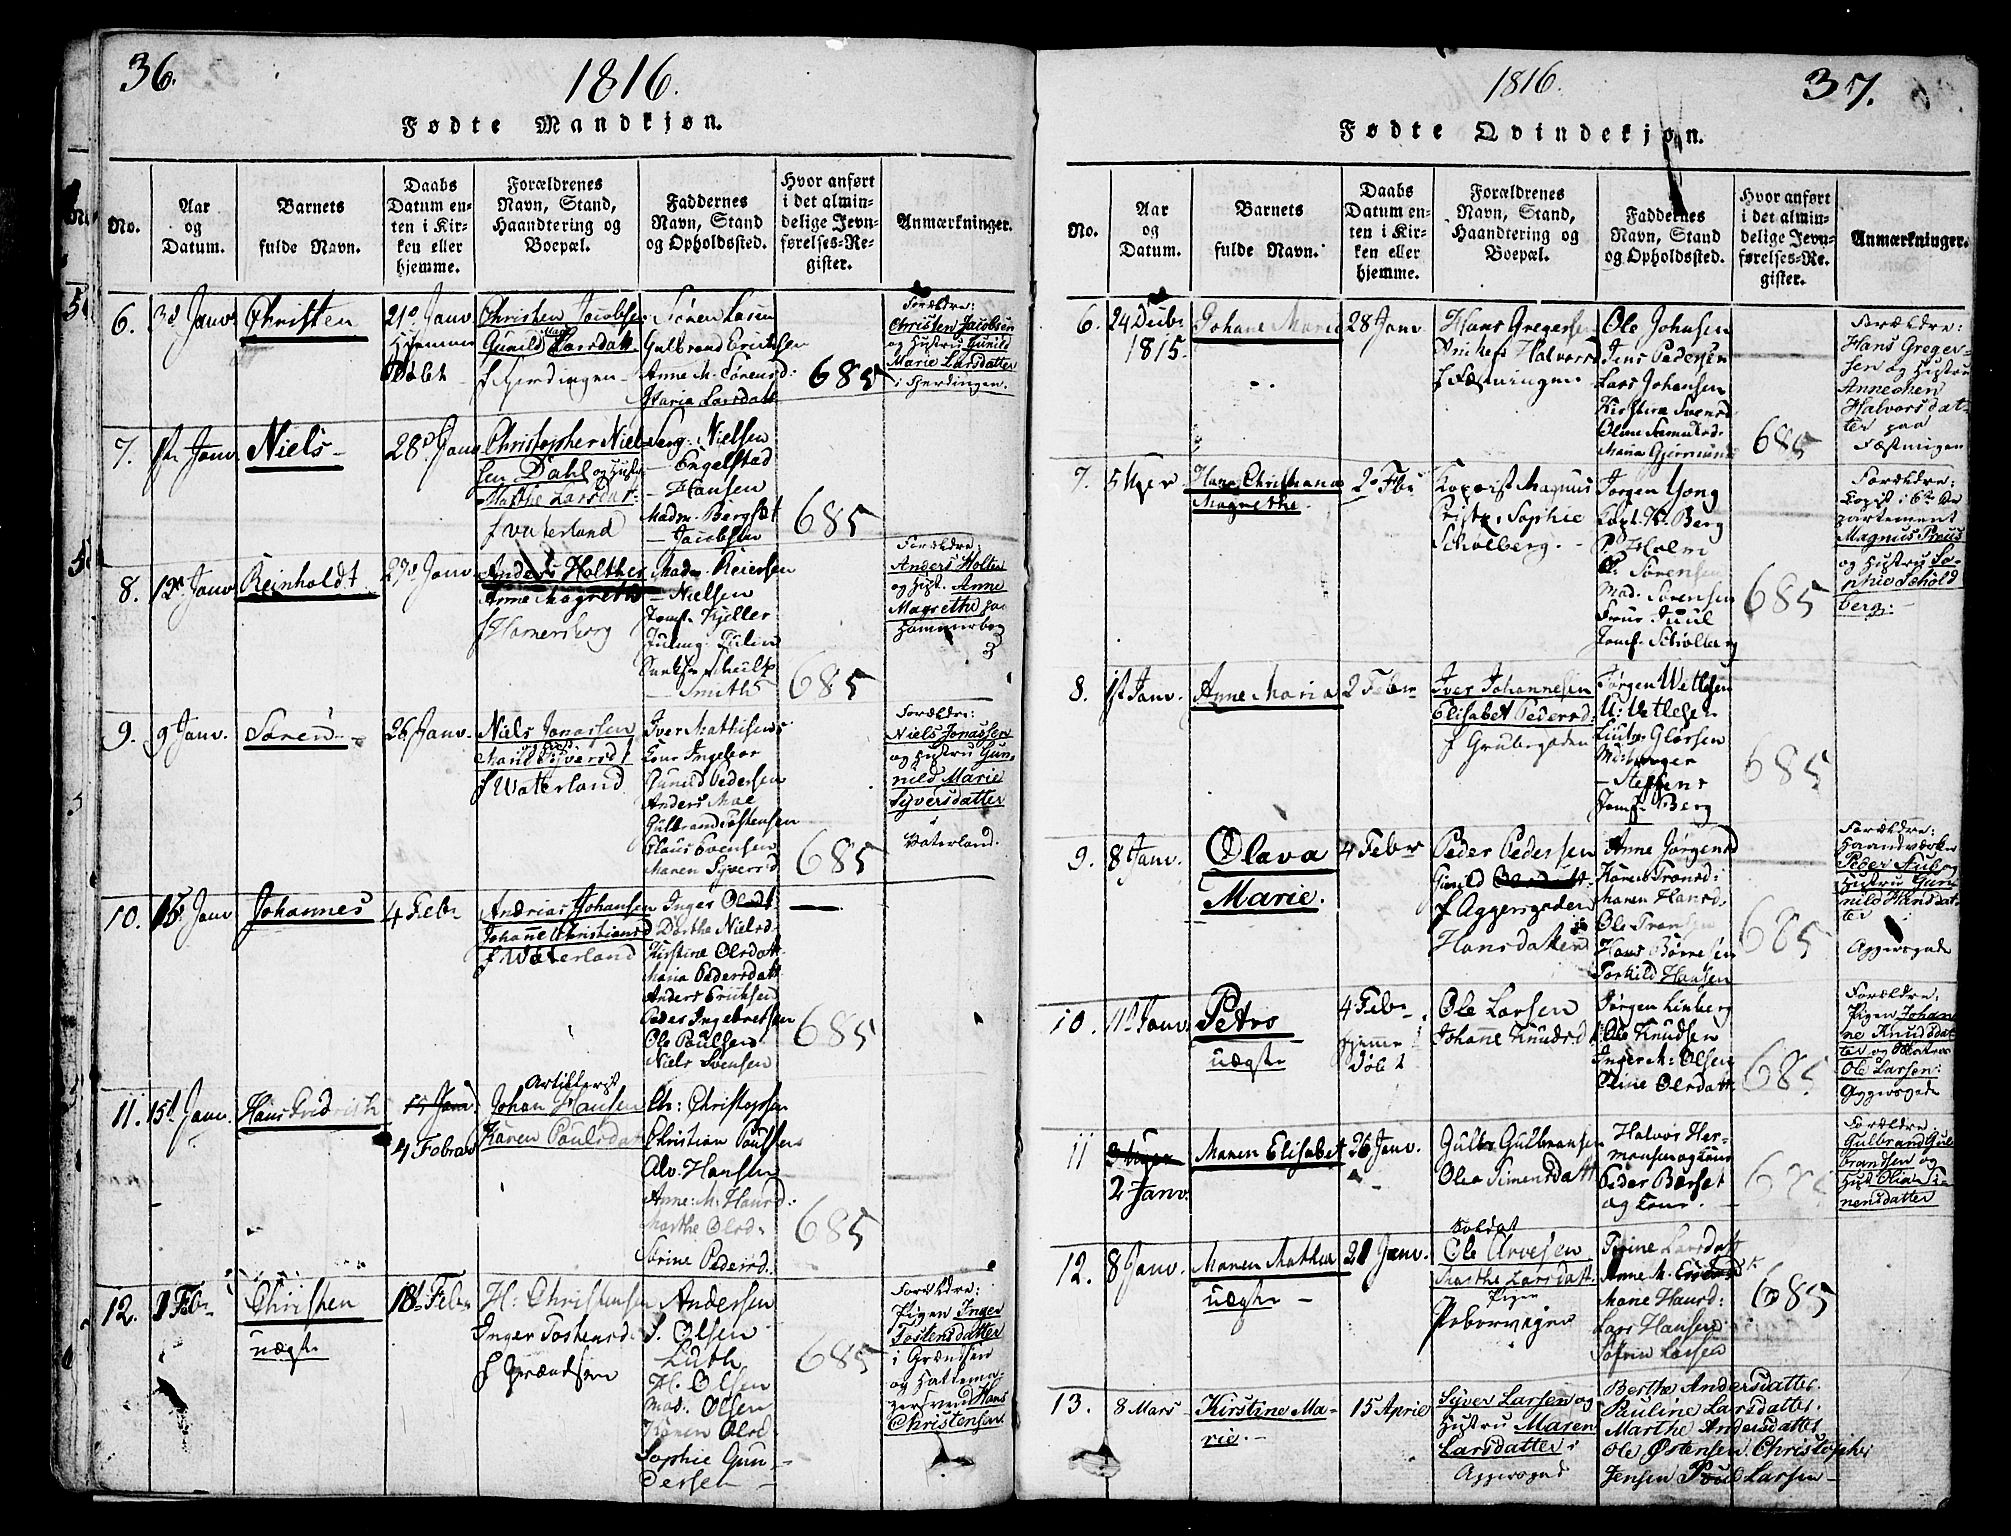 36.
1816.
Fødte Mandkjøn.
No.
Aar
og
Datum.
Barnets
fulde Navn.
Daabs
Datum en-
ten i Kir-
ken eller
hjemme.
Forældrenes
Navn, Stand,
Haandtering og
Boepæl.
Faddernes
Navn, Stand
og Opholdssted.
Hvor anført
i det almin-
delige Jevn-
førelses-Re-
gister.
Anmærkninger.
6.
3d Janv.
Christen
21d Janv
Hjemme
Døbt
Christen Jacobsen
Gunild Marie Larsdatt
Søren Lasen
Gulbrand Ericksen
Anne M. Sørensd:
Maria Larsdatt
685
Forældre:
Christen Jacobsen
og Hustru Gunild
Marie Larsdatter
i Fjerdingen.
7.
1st Janv.
Niels
28d Janv
Christopher Niel-
sen Dahl og Hust
Marthe Larsdat:
i Vaterland
Serg. Nielsen
— Engelstad
— Hansen
Madm. Bergset
— Jacobsen
685
8.
12t Janv
Reinholdt
Anders Holther
Anne Magrethe
i Hamersborg
Madm. Reiersen
— Nielsen
Jomf. Kjeller
— Smith
685
Forældre:
Anders Holter
og Hust. Anne
Magrethe paa
Hammerborg
9.
9 Janv.
Søren
26 Janv.
Niels Jonassen
i Waterland
Iver Mathisens
Kone Ingebor
Gunild Pedersen
Anders Moe
Gulbrand Tostensen
Claus Evensen
Maren Syversd
685
Forældre:
Niels Jonassen
og Hustru Gun-
nild Marie
Syversdatter
i
Vaterland.
10.
15 Janv
Johannes
4 Febr
Andrias Johansen
Johanne Christiansd
i Waterland
Inger Olsdt
Dorthe Nielsd.
Kirstine Olsdatt
Maria Pedersdatt
Anders Ericksen
Peder Ingebretsen
Ole Paulsen
Niels Svensen
685
11.
15d Janv.
Hans Fredrich
4 Febr
Artillerist
Johan Hansen
Karen Paulsdat
Chr: Christophsen
Christian Poulsen
Alv. Hansen
Anne M. Hansd:
Marthe Olsd:
Sørine Pedersd.
685
12.
1 Febr
Christen
uægte
18 Febr
H: Christensen
Inger Tostensd:
i Grændsen
Andersen
S. Olsen
Luth
H. Olsen
Mad. Olsen
Karen Olsd
Sophie Gun-
dersen
685
Forældre:
Pigen Inger
Tostensdatter
i Grændsen
og Hattema-
gersvend Hans
Christensen.
1816.
37.
Fødte Qvindekjøn.
No.
Aar
og
Datum.
Barnets
fulde Navn.
Daabs
Datum en-
ten i Kir-
ken eller
hjemme.
Forældrenes
Navn, Stand,
Haandtering og
Boepæl.
Faddernes
Navn, Stand
og Opholdssted.
Hvor anført
i det almin-
delige Jevn-
førelses-Re-
gister.
Anmærkninger.
6.
24 Debr
1815.
Johane Marie
28 Janv.
Hans Gregersen
i Fæstningen
Ole Johnsen
Jens Pedersen
Lars Johansen
Kirstine Svensd
Oline Samuelsd.
Maria Gjermunds
685
Forældre:
Hans Greger-
sen og Hustru
Anneken
Halvorsdat-
ter paa
Fæstnigen
7.
Hans Christiana
Magrethe.
2 Feb
Kopist Magnus
Sophie
Schølberg.
Jørgen Yong
Capt. v. Berg
P. Holm
P. Sørensen
Mad. Sørensen
Frue Juul
Jomf. Schølberg
685
Forældre:
Copist i 6te De
partement
Magnus Preus
og Hustru So-
phie Schold
berg:
8.
1st Janv.
Anne Maria
2 Febr
Iver Johannesen
Elisabet Pedersd:
i Grubegaden
Jørgen Wetlesen
U. Vetlesen
— Steffens
Jomf. Berg
685
9.
8 Janv.
Olava
Marie.
4 Febr
Peder Pedersen
Gunild
i Aggersgaden
Hansdatter
Anne Jørgensd
Karen Tronsd:
Maren Hansd.
Ole Tronsen
Hans Børresen
Torkild Hansen
685
Forældre:
Haandværker
Peder Stub og
Hustru Gun-
nild Hansdat-
ter
Aggersgade
10.
11t Janv
Petro
uægte
4 Febr
hjemme
døbt
Ole Larsen
Johanne Knudsd
Jørgen Linberg
Ole Knudsen
Inger M. Olsen
Oline Olsdatt
685
Forældre:
Pigen Johan
ne Knudsdat
ter og Matros
Ole Larsen:
Aggersgade
11
2 Janv
Maren Elisabet
26 Janv.
Gulbr Gulbransen
Olea Simensdatt
Halvor Her-
mansen og Kone
Peder Børset
og Kone.
685
Forældre:
Gulbrand Gul
brandsen og
Hust Olia Si-
mensdatter
12.
8 Janv.
Maren Mathea
uægte
21 Janv.
Soldat
Ole Arvesen
Marthe Larsdatt.
Pigen
Peborvigen
Trine Larsdatt
Anne M.
Marie Hansd:
Lars Hansen
Søfren Larsen
685
13.
8 Mars
Kirstine Ma-
rie.
15 April
Syver Larsen og
Hustru Maren
Larsdatter i
Aggersgad
Berthe Andersdatter.
Pauline Larsdatter.
Marthe Andersdatter
Ole Østensen. Christopher
Jensen Poul Larsen